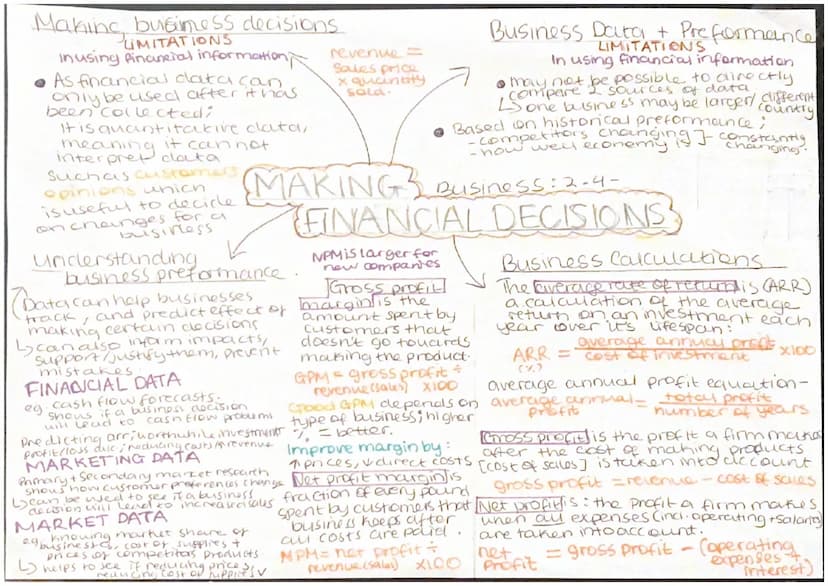 Making business decisions
LIMITATIONS
In using financial information
• As financial data can
only be used after it has
been collected;
it is quantitative data,
meaning it can not
interpret data
such as customers
opinions which
is useful to decide
on changes for a
business
revenue =
sales price
x quantity
sold.
Business Data + Preformance
LIMITATIONS
In using financial information
• may not be possible to directly
compare 2 sources of data
↳ one business may be larger/different
country
• Based on historical preformance;
- competitors changing ] - constantly
- how well economy is changing.
MAKING
Business: 2-4-
FINANCIAL DECISIONS
Understanding
business preformance.
Data can help businesses
track, and predict effect of
making certain decisions
↳ can also inform impacts,
support/justify them, prevent
mistakes
FINANCIAL DATA
eg cash flow forecasts.
shows if a business decision
will lead to cash flow problems
Predicting arr; worthwhile investment
profit/loss acc; reducing costs/↑revenue
MARKETING DATA
Primary + secondary market research
shows how customer preferences change
↳ can be used to see if a business
decision will lead to increase sales
MARKET DATA
eg, knowing market share of
businesses, cost of supplies +
prices of competitors products
↳ helps to see if reducing prices,
reducing cost of supplies ✓
NPM is larger for
new companies
Gross profit
margin is the
amount spent by
customers that
doesn't go towards
making the product.
GPM = gross profit ÷
revenue(sales) x100
Good GPM depends on
type of business; higher
% = better.
Improve margin by:
↑ prices, ↓ direct costs
Net profit margin is
fraction of every pound
spent by customers that
business keeps after
all costs are paid.
NPM = net profit ÷
revenue(sales) x100
Business Calculations
The average rate of return is (ARR)
a calculation of the average
return on an investment each
year over it's lifespan:
ARR = average annual profit x100
(%) cost of investment
average annual profit equation -
average annual = total profit
profit number of years
Gross profit is the profit a firm makes
after the cost of making products
[cost of sales] is taken into account
gross profit = revenue - cost of sales
Net profit is: the profit a firm makes
when all expenses (incl. operating + salaries)
are taken into account.
net = gross profit - (operating
profit expenses +
interest)